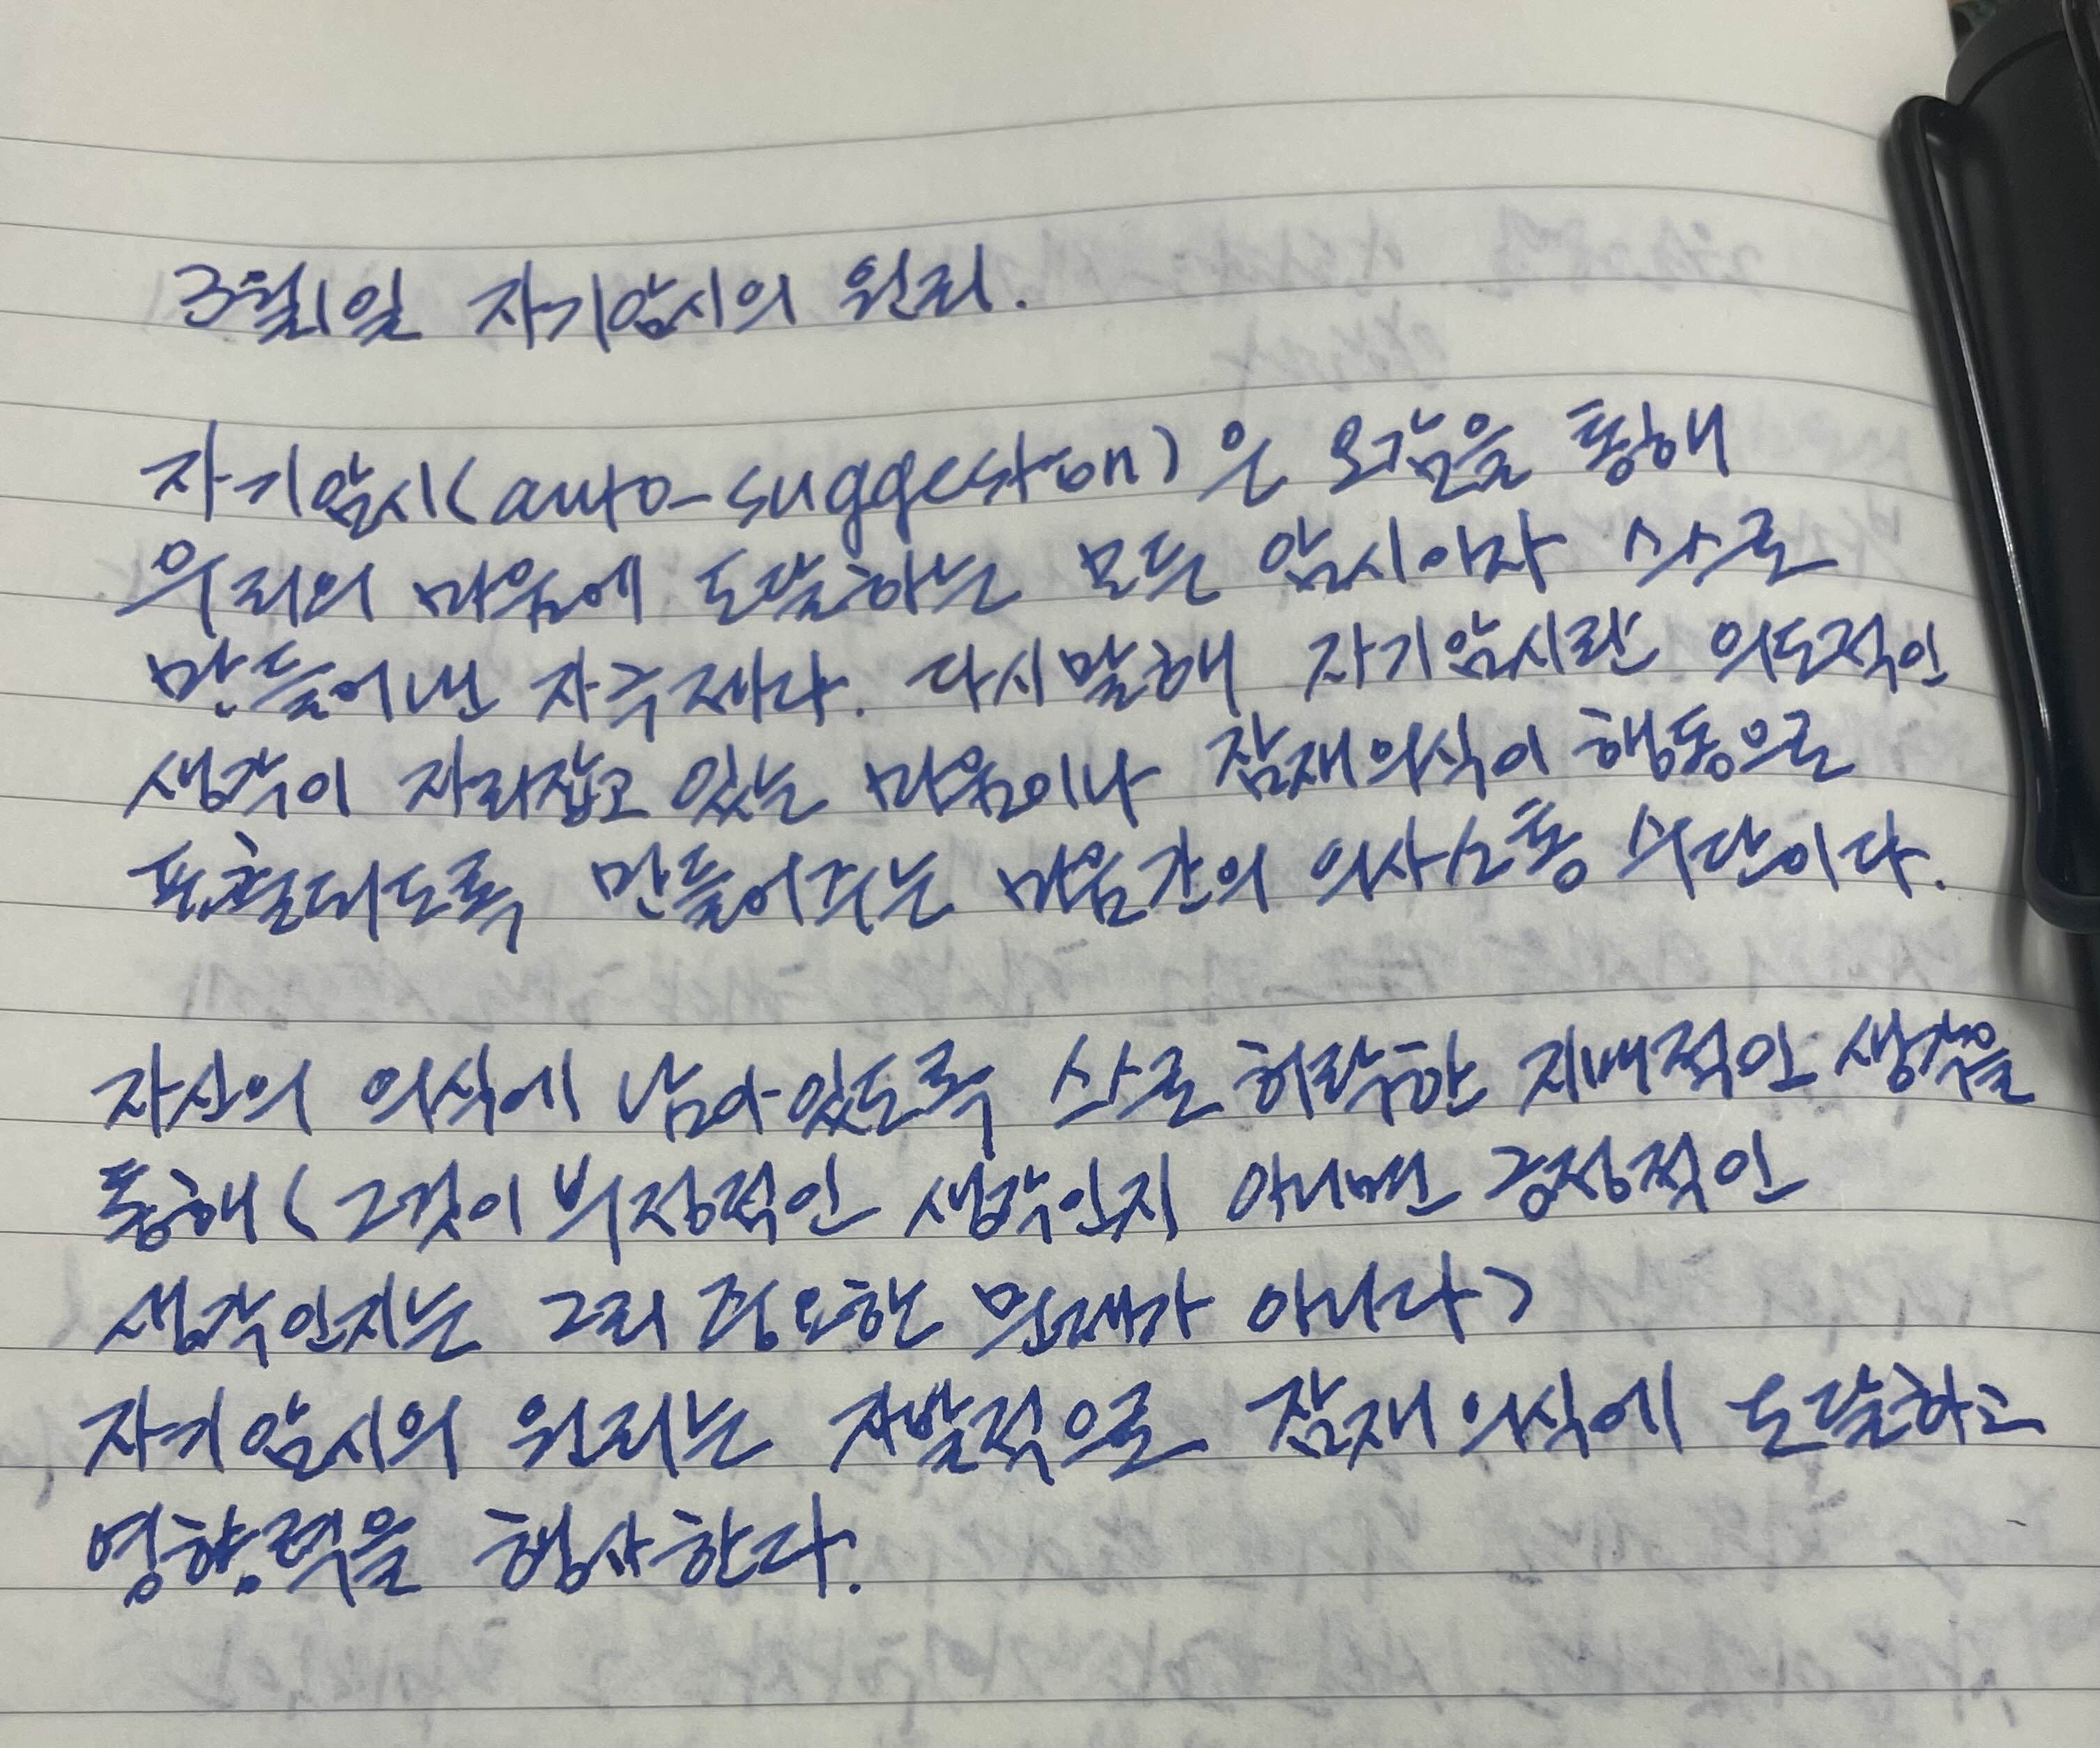 3월1일 자기암시의 원리.
자기암시(auto-suggestion)은 오감을 통해
우리의 마음에 도달하는 모든 암시이자 스스로
만들어낸 자극제다. 다시말해 자기암시란 의도적인
생각이 자리잡고 있는 마음이나 잠재의식이 행동으로
표출되도록 만들어주는 마음간의 의사소통 수단이다.
자신의 의식에 남아있도록 스스로 허락한 지배적인 생각을
통해(그것이 부정적인 생각인지 아니면 긍정적인
생각인지는 그리 중요한 문제가 아니다)
자기암시의 원리는 자발적으로 잠재의식에 도달하고
영향력을 행사한다.